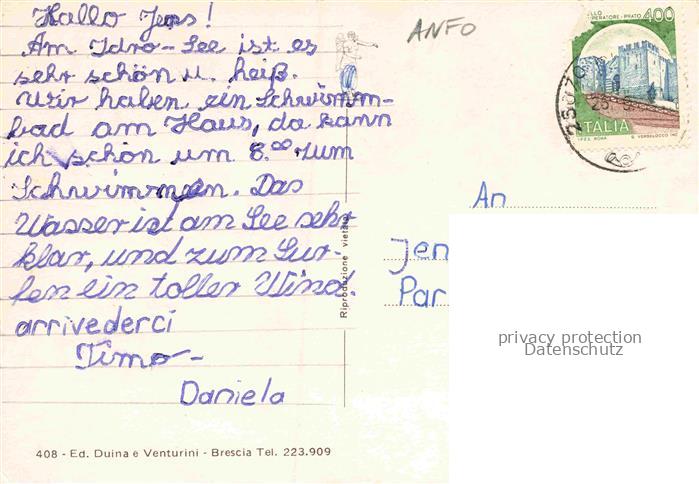 Hallo Jens!
Am Idro-See ist es
sehr schön u. heiß.
Wir haben ein Schwimm-
bad am Haus, da kann
ich schon um 8.00 zum
Schwimmen. Das
Wasser ist am See sehr
klar, und zum Sur-
fen ein toller Wind.
arrivederci
Timo -
Daniela
408 - Ed. Duina e Venturini - Brescia Tel. 223.909
Riproduzione vietata
ANFO
400
PERATORE - PRATO
ITALIA
I.P.Z.S. ROMA
An
Jen
Par
privacy protection
Datenschutz